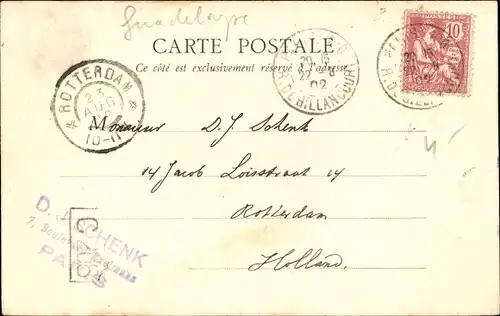 Guadeloupe
CARTE POSTALE
Ce côté est exclusivement réservé à l'adresse
ROTTERDAM
23
AUG
10-11
R. DE BILLANCOURT
22
02
POSTES
10
R. DE BILLANCOURT
Monsieur D. J. Schenk
14 Jacob Loisstraat 14
Rotterdam
Holland.
D. J. SCHENK
7, Boulevard
PARIS